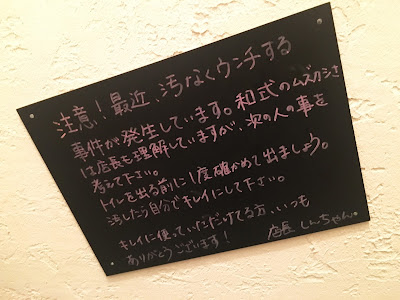 注意！最近、汚なくウンチする
事件が発生しています。和式のムズカシさ
は店長も理解していますが、次の人の事を
考えて下さい。
トイレを出る前に1度確かめて出ましょう。
汚したら自分でキレイにして下さい。
キレイに使っていただけてる方、いつも
ありがとうございます！
店長 しんちゃん。